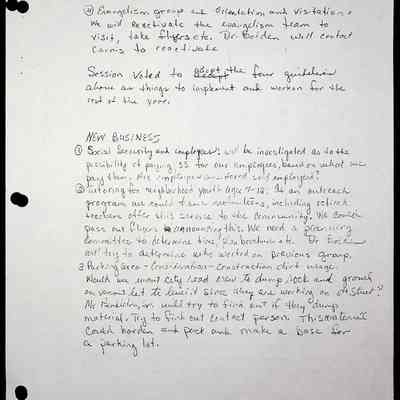 ④ Evangelism group and Orientation and visitation.
We will reactivate the evangelism team to
visit, take flyers etc. Dr. Beiden will contact
to reactivate
Session voted to adopt the four guidelines
above as things to implement and work on for the
rest of the year.
NEW BUSINESS
① Social Security and employees: will be investigated as to the
possibility of paying SS for our employees, based on what we
pay them. Are employees considered self employed?
② Tutoring for neighborhood youth ages 7-12: As an outreach
program we could have members, including retired
teachers offer this service to the community. We could
pass out flyers announcing this. We need a planning
committee to determine time, etc. Dr
will try to determine who worked on previous group.
3 Parking area - construction dirt usage.
Would we want city road crew to dump rock and
on vacant lot to level it since they are working on street?
Mr will try to find out if they dump
material. Try to find out contact person. This material
could harden and pack and make a base for
a parking lot.